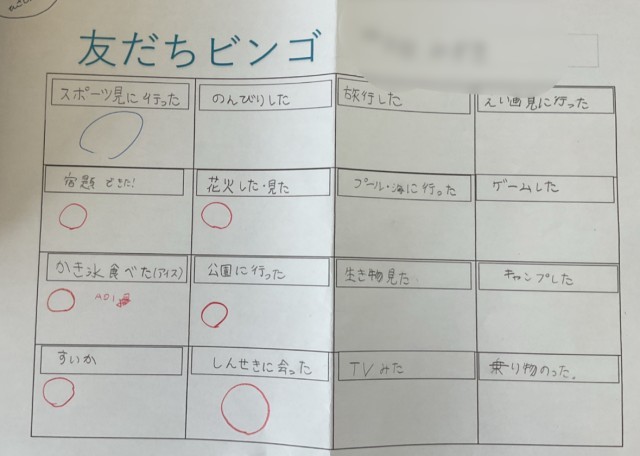 友だちビンゴ
スポーツ見に行った
のんびりした
旅行した
えい画見に行った
宿題 できた!
花火した・見た
プール・海に行った
ゲームした
かき氷食べた(アイス)
公園に行った
生き物見た
キャンプした
すいか
しんせきに会った
TVみた
乗り物のった。